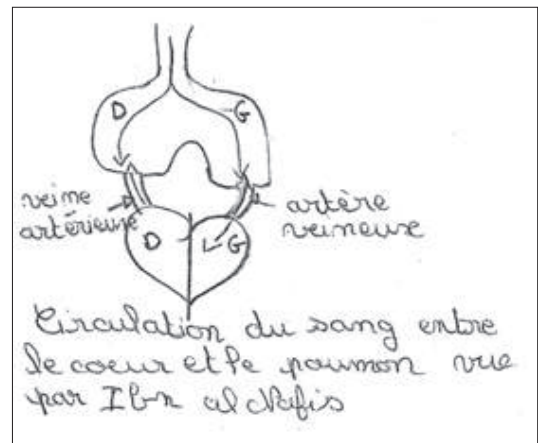 D G
veine
artérieuse
artère
veineuse
D G
Circulation du sang entre
le coeur et le poumon vue
par Ibn al Nafis